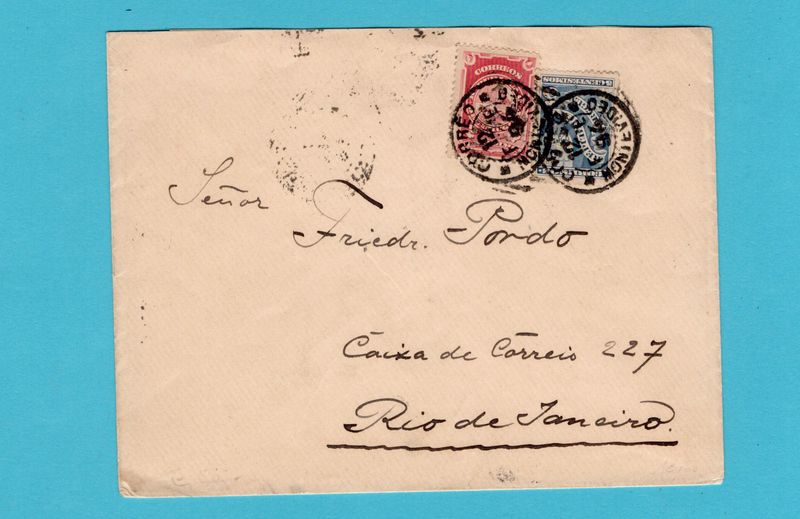 CORREOS
5 CENTESIMOS
CORREO
MONTEVIDEO
MONTEVIDEO
Señor
Friedr. Pordo
Caixa de Correio 227
Rio de Janeiro.